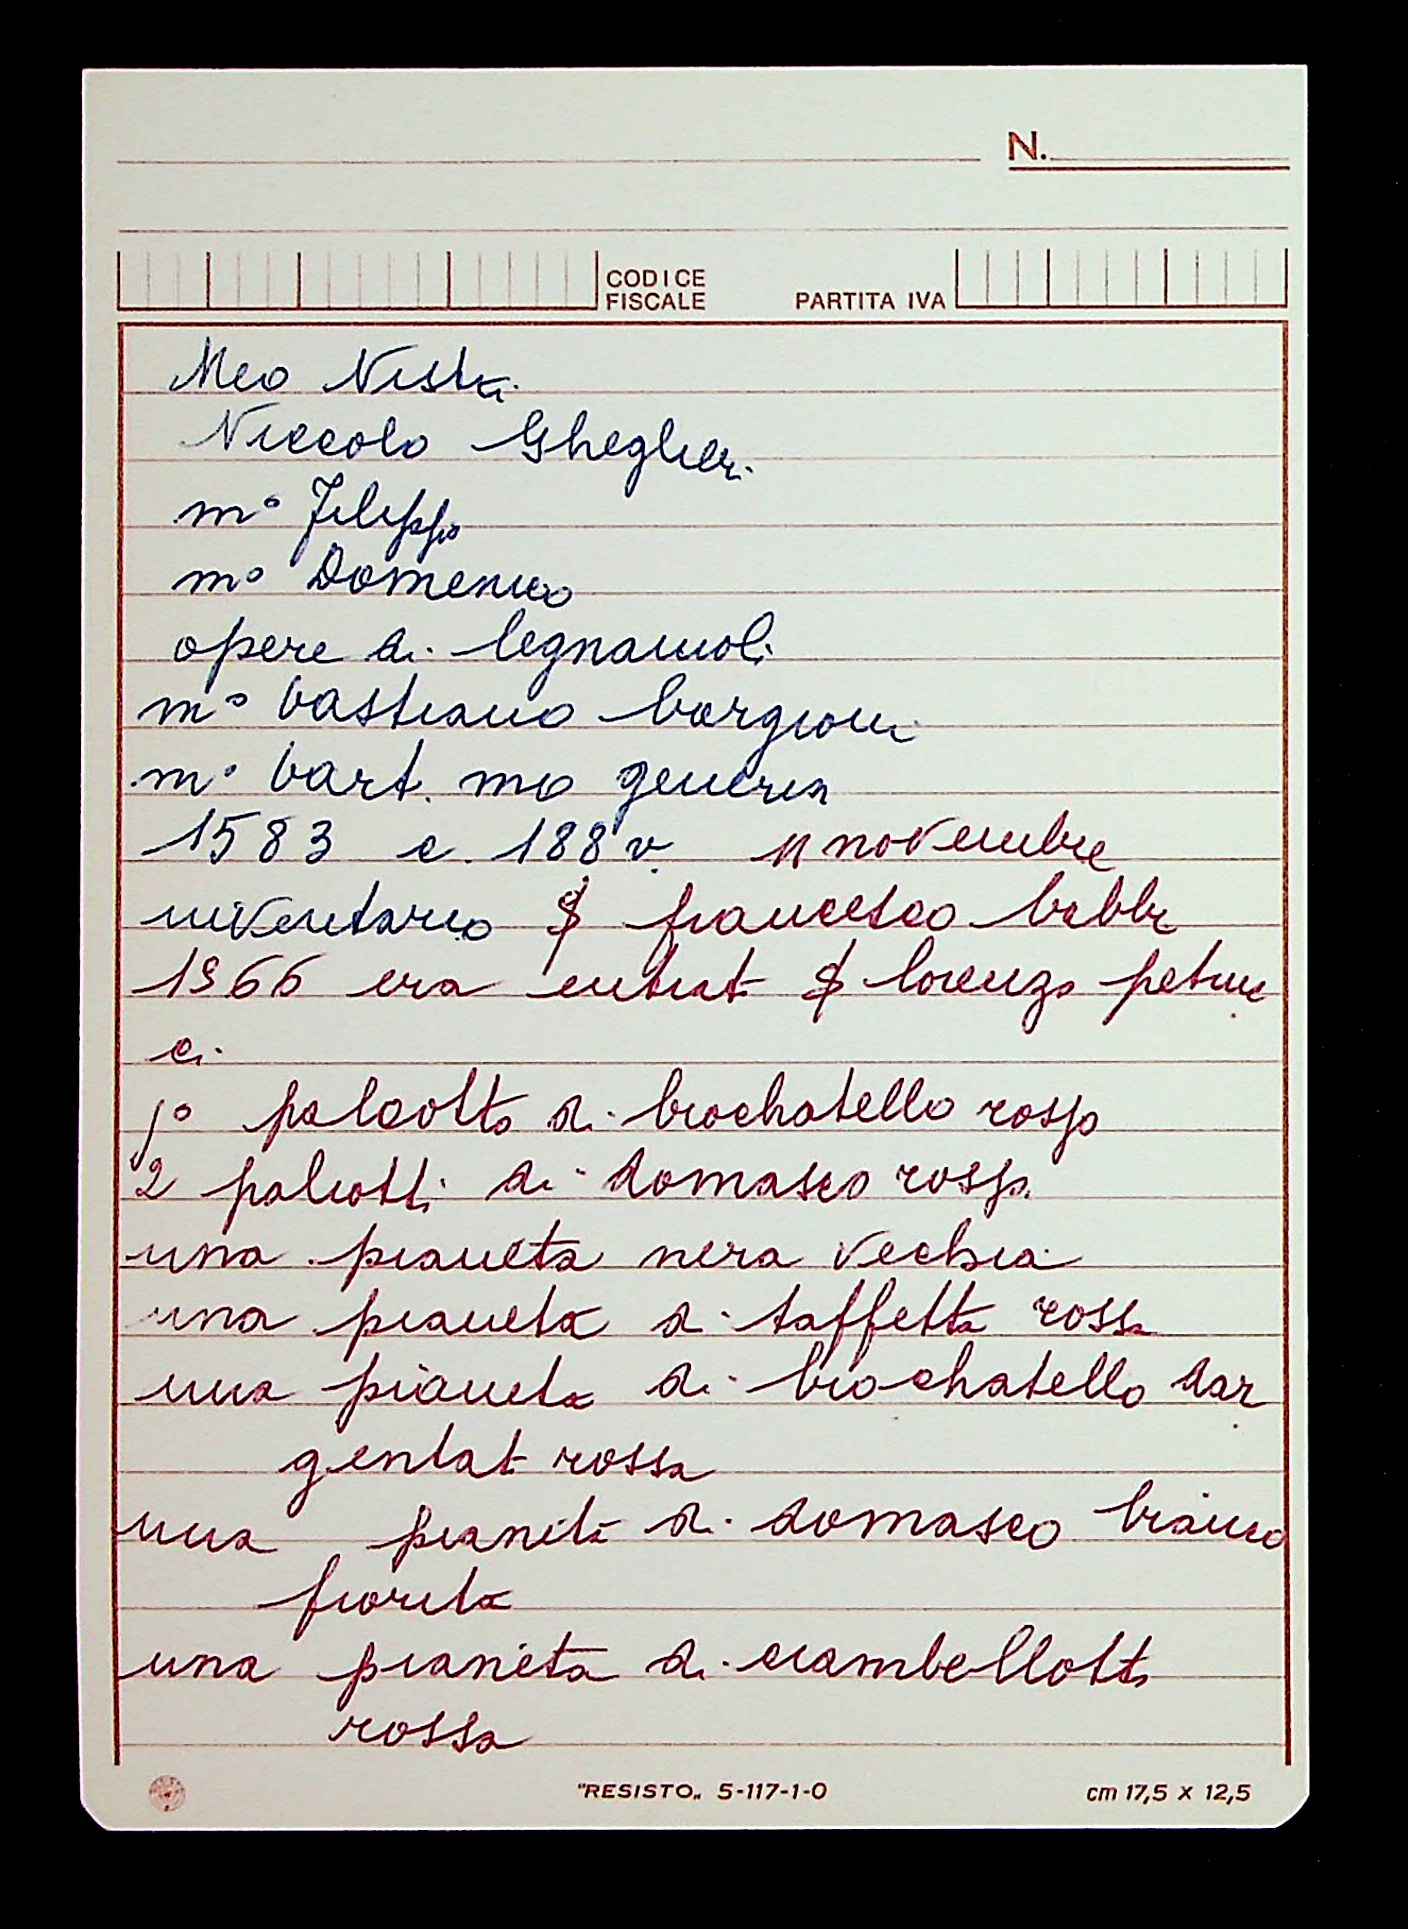 N.
CODICE
FISCALE
PARTITA IVA
Meo
Niccolo Gheglieri
m° Filippo
m° Domenico
opere di legnaiuoli
m° bastiano borgioni
m° bart. mo
1583 c. 188 v. 11 novembre
inventario francesco
1566 era entrat lorenzo petruc
ci
j° paleotto di brochatello rosso
2 paliotti di domasco rosso
una pianeta nera vechia
una pianeta di taffetta rossa
una pianeta di brochatello dar
gentat rossa
una pianeta di domasco bianco
fiorita
una pianeta di ciambellotto
rossa
"RESISTO„ 5-117-1-0
cm 17,5 x 12,5